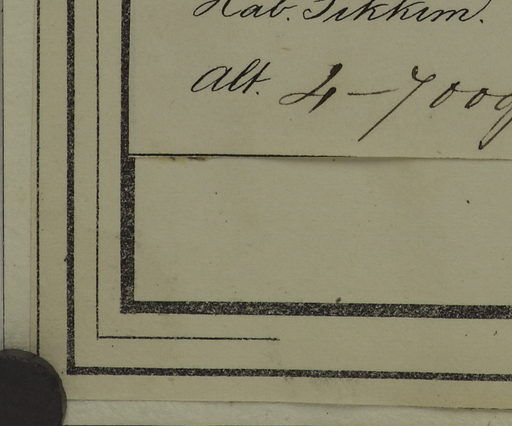 Hab. Sikkim.
Alt. 4-7000